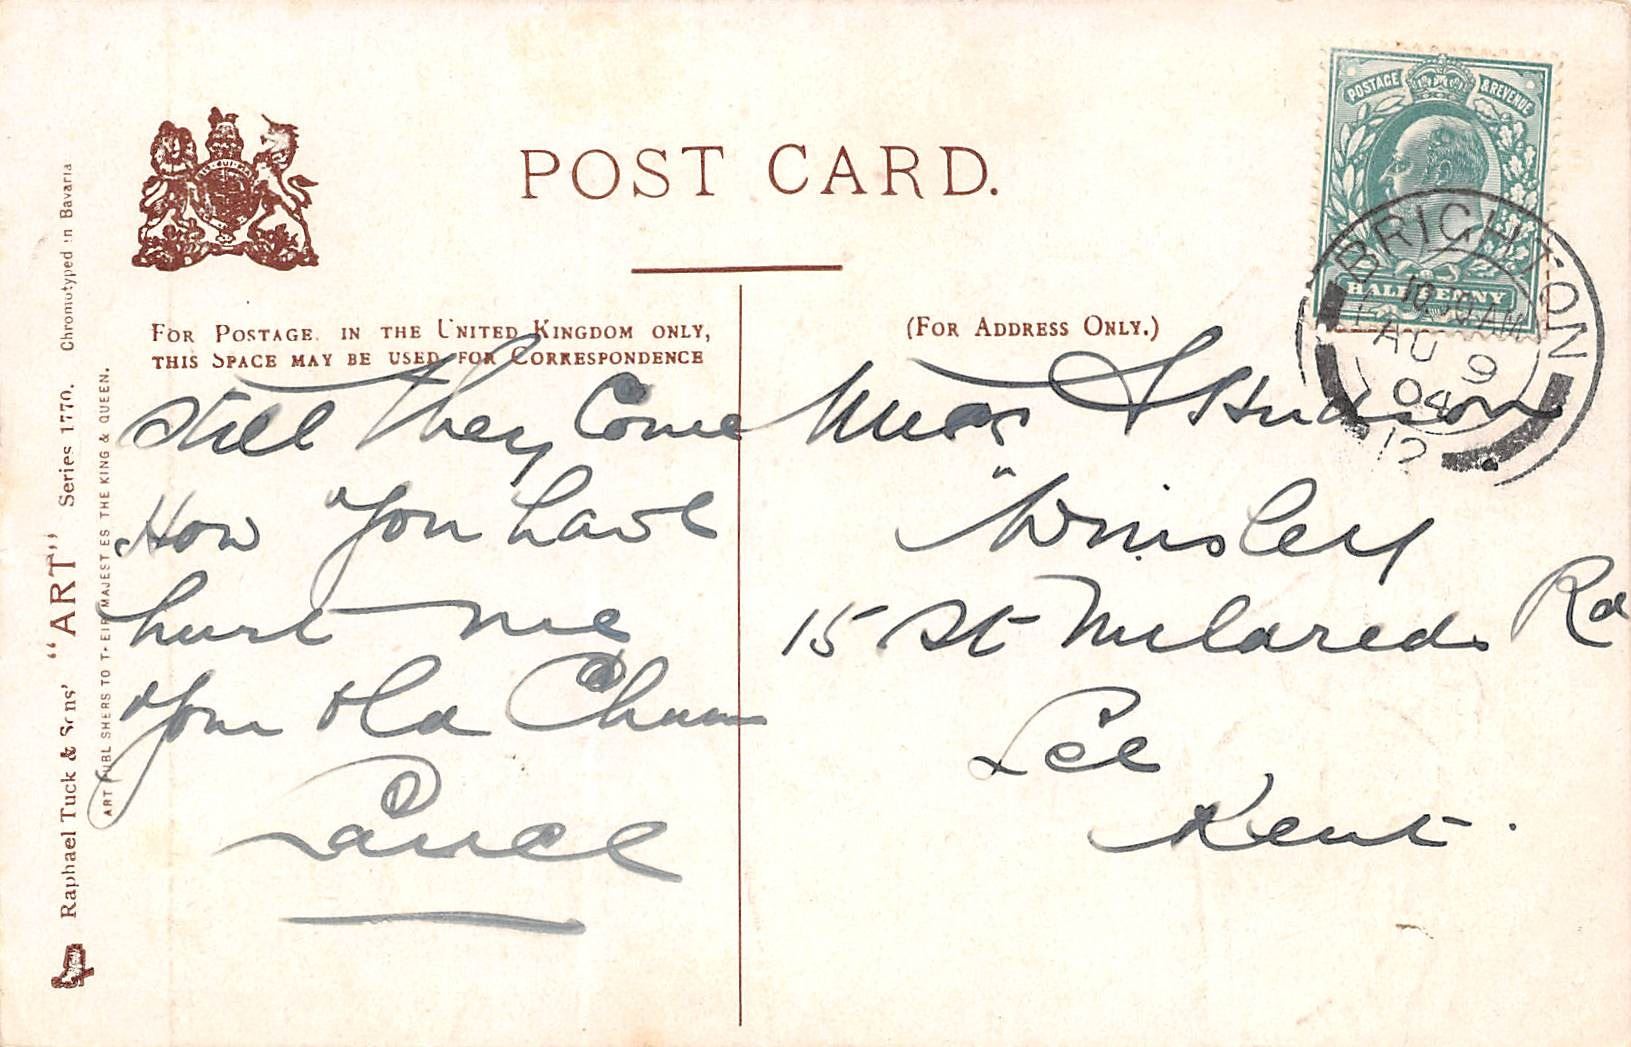 POST CARD.
FOR POSTAGE IN THE UNITED KINGDOM ONLY,
THIS SPACE MAY BE USED FOR CORRESPONDENCE
(FOR ADDRESS ONLY.)
Still They Come
How you have
hurt me
your old Chum
Lance
Miss Hudson
"Winsley
15 St Mildreds Rd
Lee
Kent.
POSTAGE & REVENUE
HALFPENNY
BRIGHTON
10.30 AM
AU 9
04
12
Raphael Tuck & Sons' "ART" Series 1770. Chromotyped in Bavaria
ART PUBLISHERS TO THEIR MAJESTIES THE KING & QUEEN.